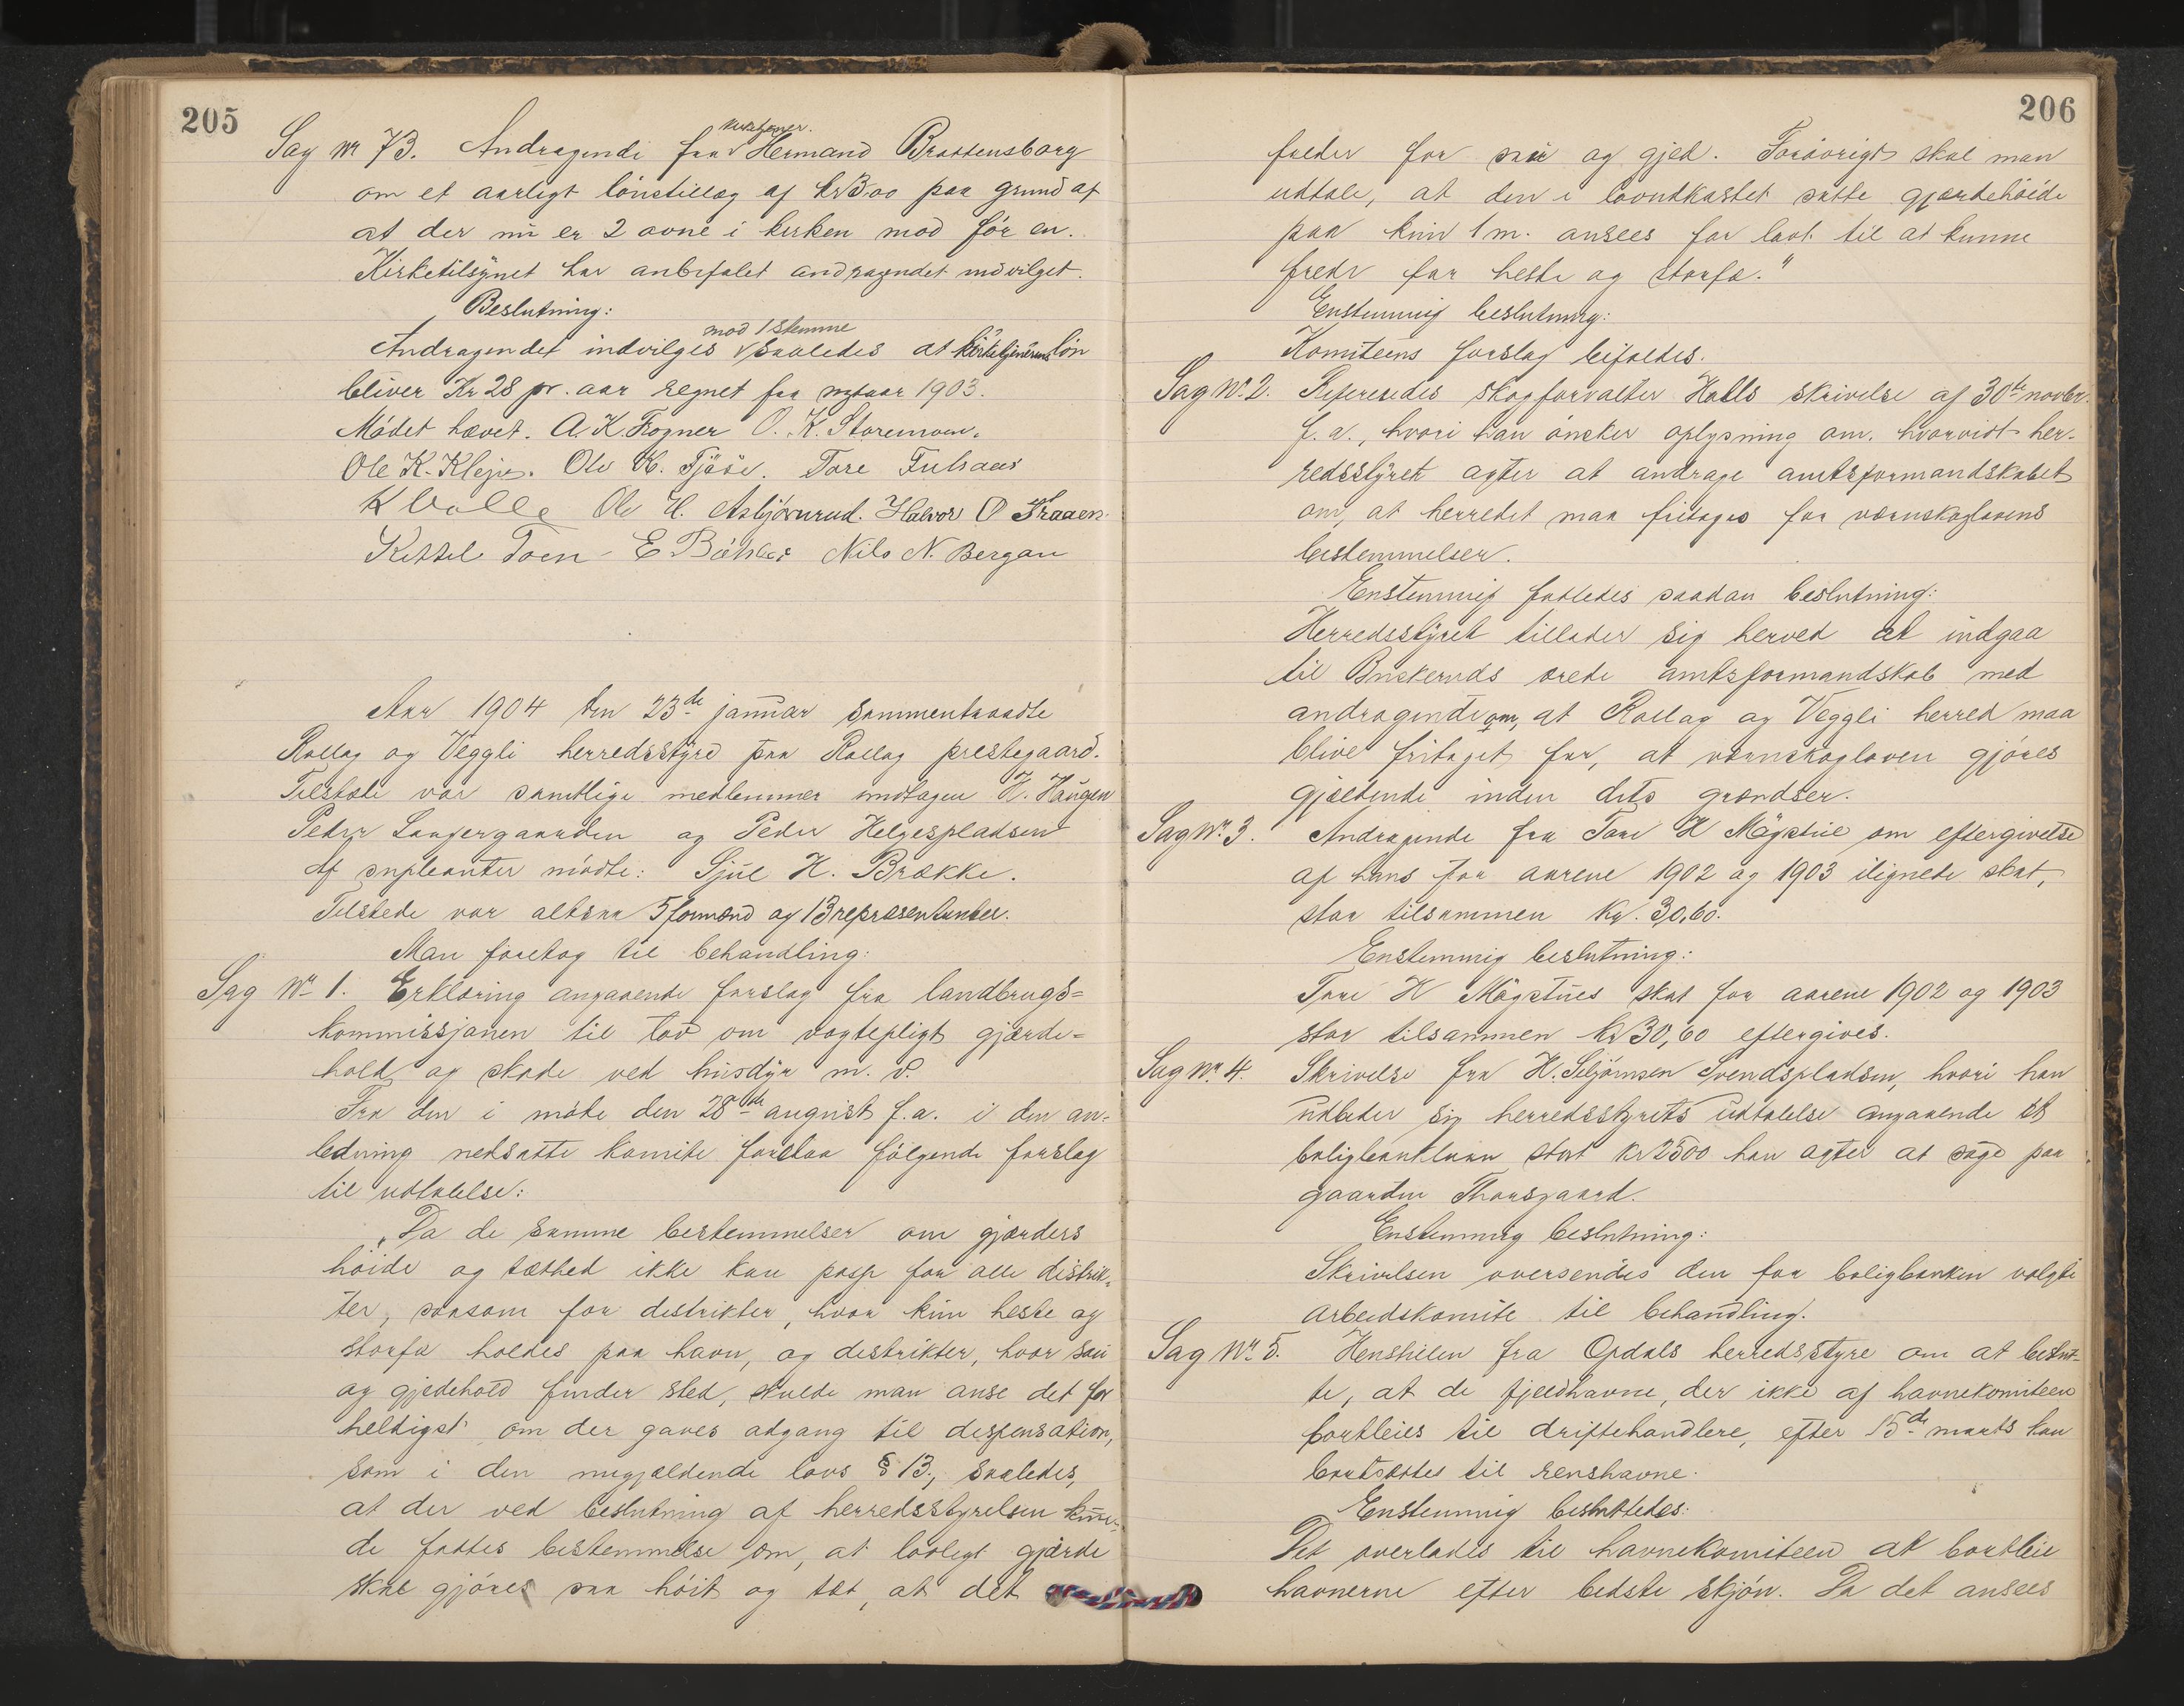 205
kirketjener.
Sag nr 73. Andragende fra Hermand Brattensborg
om et aarligt lönstillæg af kr 3.00 paa grund af
at der nu er 2 ovne i kirken mod för en.
Kirketilsynet har anbefalet andragendet indvilget.
Beslutning:
mod 1 stemme
Andragendet indvilges saaledes at kirketjenerens lön
bliver Kr 28 pr. aar regnet fra nytaar 1903.
Mödet hævet. A. K. Frogner O. K. Storemoen.
Ole K. Ole K. Tore Fulsaas
K Ole H. Asbjörnrud. Halvor O Traaen.
Kittil Toen E Böhler Nils N. Bergan
Aar 1904 den 23de januar sammentraadte
Rollag og Veggli herredsstyre paa Rollag prestegaard.
Tilstede var samtlige medlemmer undtagen H. Haugen
Peder og Peder Helgespladsen
Af supleanter mödte: Sjul H. Brække.
Tilstede var altsaa 5 formænd og 13 repræsentanter.
Man foretog til behandling:
Sag Nr 1. Erklæring angaaende forslag fra landbrugs=
kommissjonen til lov om vogtepligt gjærde=
hold og skade ved husdyr m. v.
Fra den i möde den 28de august f. a. i den an=
ledning nedsatte komite forelaa fölgende forslag
til udtalelse:
„Da de samme bestemmelser om gjærders
höide og tæthed ikke kan passe for alle distrik=
ter, saasom for distrikter, hvor kun heste og
storfæ holdes paa havn, og distrikter, hvor sau
og gjedehold finder sted, skulde man anse det for
heldigst om der gaves adgang til dispensation,
som i den nugjældende lovs § 13, saaledes,
at der ved beslutning af herredsstyrelsen kun=
de fattes bestemmelse om, at lovligt gjærde
skal gjöres saa höit og tæt, at det
206
freder for sau og gjed. Forövrigt skal man
udtale, at den i lovudkastet satte gjærdehöide
paa kun 1 m. ansees for lavt til at kunne
frede for heste og storfæ."
Enstemmig beslutning:
Komiteens forslag bifaldes.
Sag Nr. 2. Refereredes skogforvalter Halls skrivelse af 30te novbr.
f. a., hvori han önsker oplysning om, hvorvidt her=
redsstyret agter at andrage amtsformandskabet
om, at herredet maa fritages for vernskoglovens
bestemmelser.
Enstemmig fattedes saadan beslutning:
Herredsstyret tillader sig herved at indgaa
til Buskeruds ærede amtsformandskab med
andragende om, at Rollag og Veggli herred maa
blive fritaget for, at vernskogloven gjöres
gjældende inden dets grændser.
Sag Nr. 3. Andragende fra Tore H om eftergivelse
af hans for aarene 1902 og 1903 ilignede skat,
stor tilsammen Kr. 30,60.
Enstemmig beslutning:
Tore H skat for aarene 1902 og 1903
stor tilsammen kr 30,60 eftergives.
Sag Nr. 4. Skrivelse fra H. Svendspladsen, hvori han
udbeder sig herredsstyrets udtalelse angaaende et
boligbanklaan stort kr 2500 han agter at söge paa
gaarden Thorsgaard.
Enstemmig beslutning:
Skrivelsen oversendes den for boligbanken valgte
arbeidskomite til behandling.
Sag Nr. 5. Henstillen fra Opdals herredsstyre om at beslut=
te, at de fjeldhavne, der ikke af havnekomiteen
bortleies til driftehandlere, efter 15de marts kan
bortsættes til renshavne.
Enstemmig besluttedes:
Det overlades til havnekomiteen at bortleie
havnerne efter bedste skjön. Da det ansees